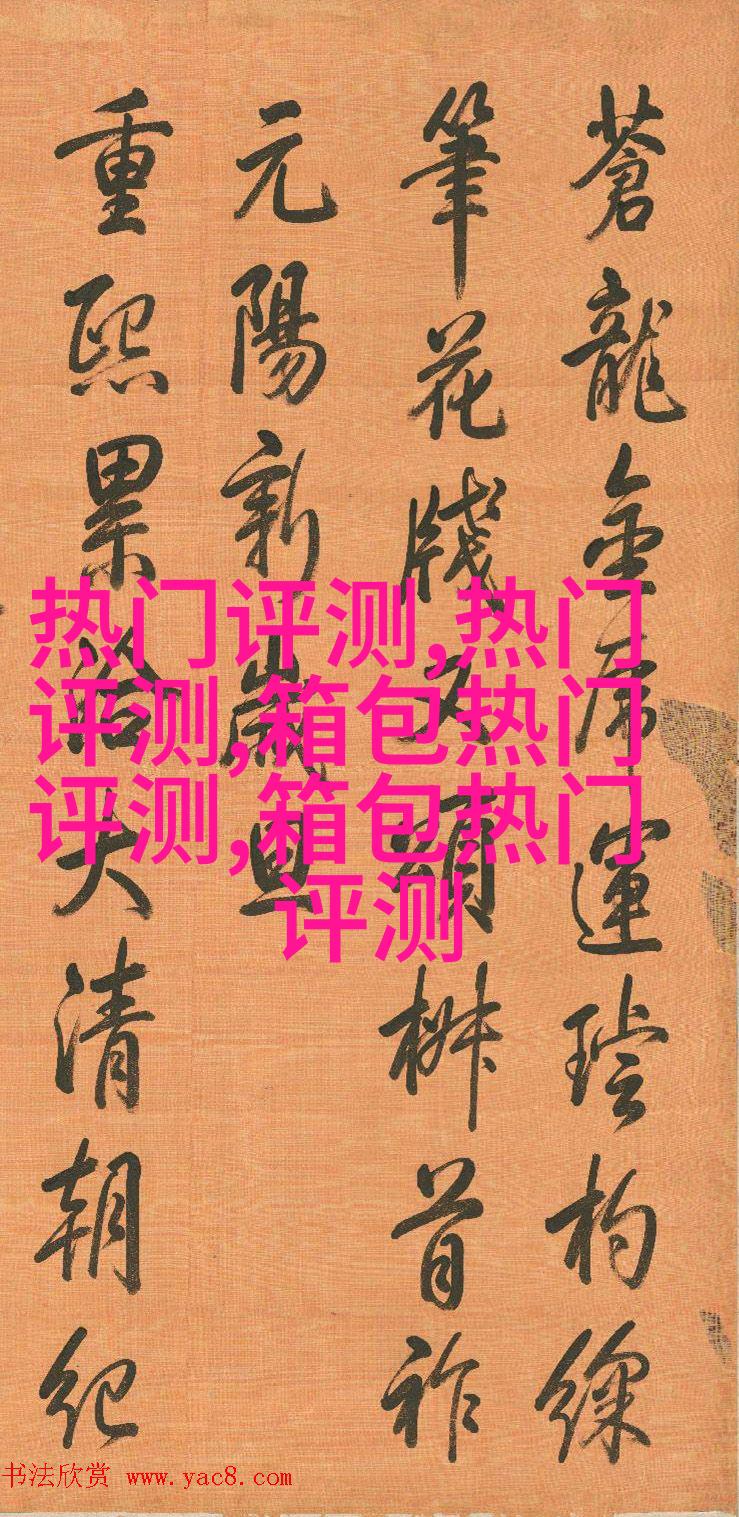 蒼龍金虎運璿杓綵
筆花牋文頌椒首祚
元陽新歲旦
重熙累洽大清朝紀
热门评测,热门
评测,箱包热门
评测,箱包热门
评测
书法欣赏 www.yac8.com